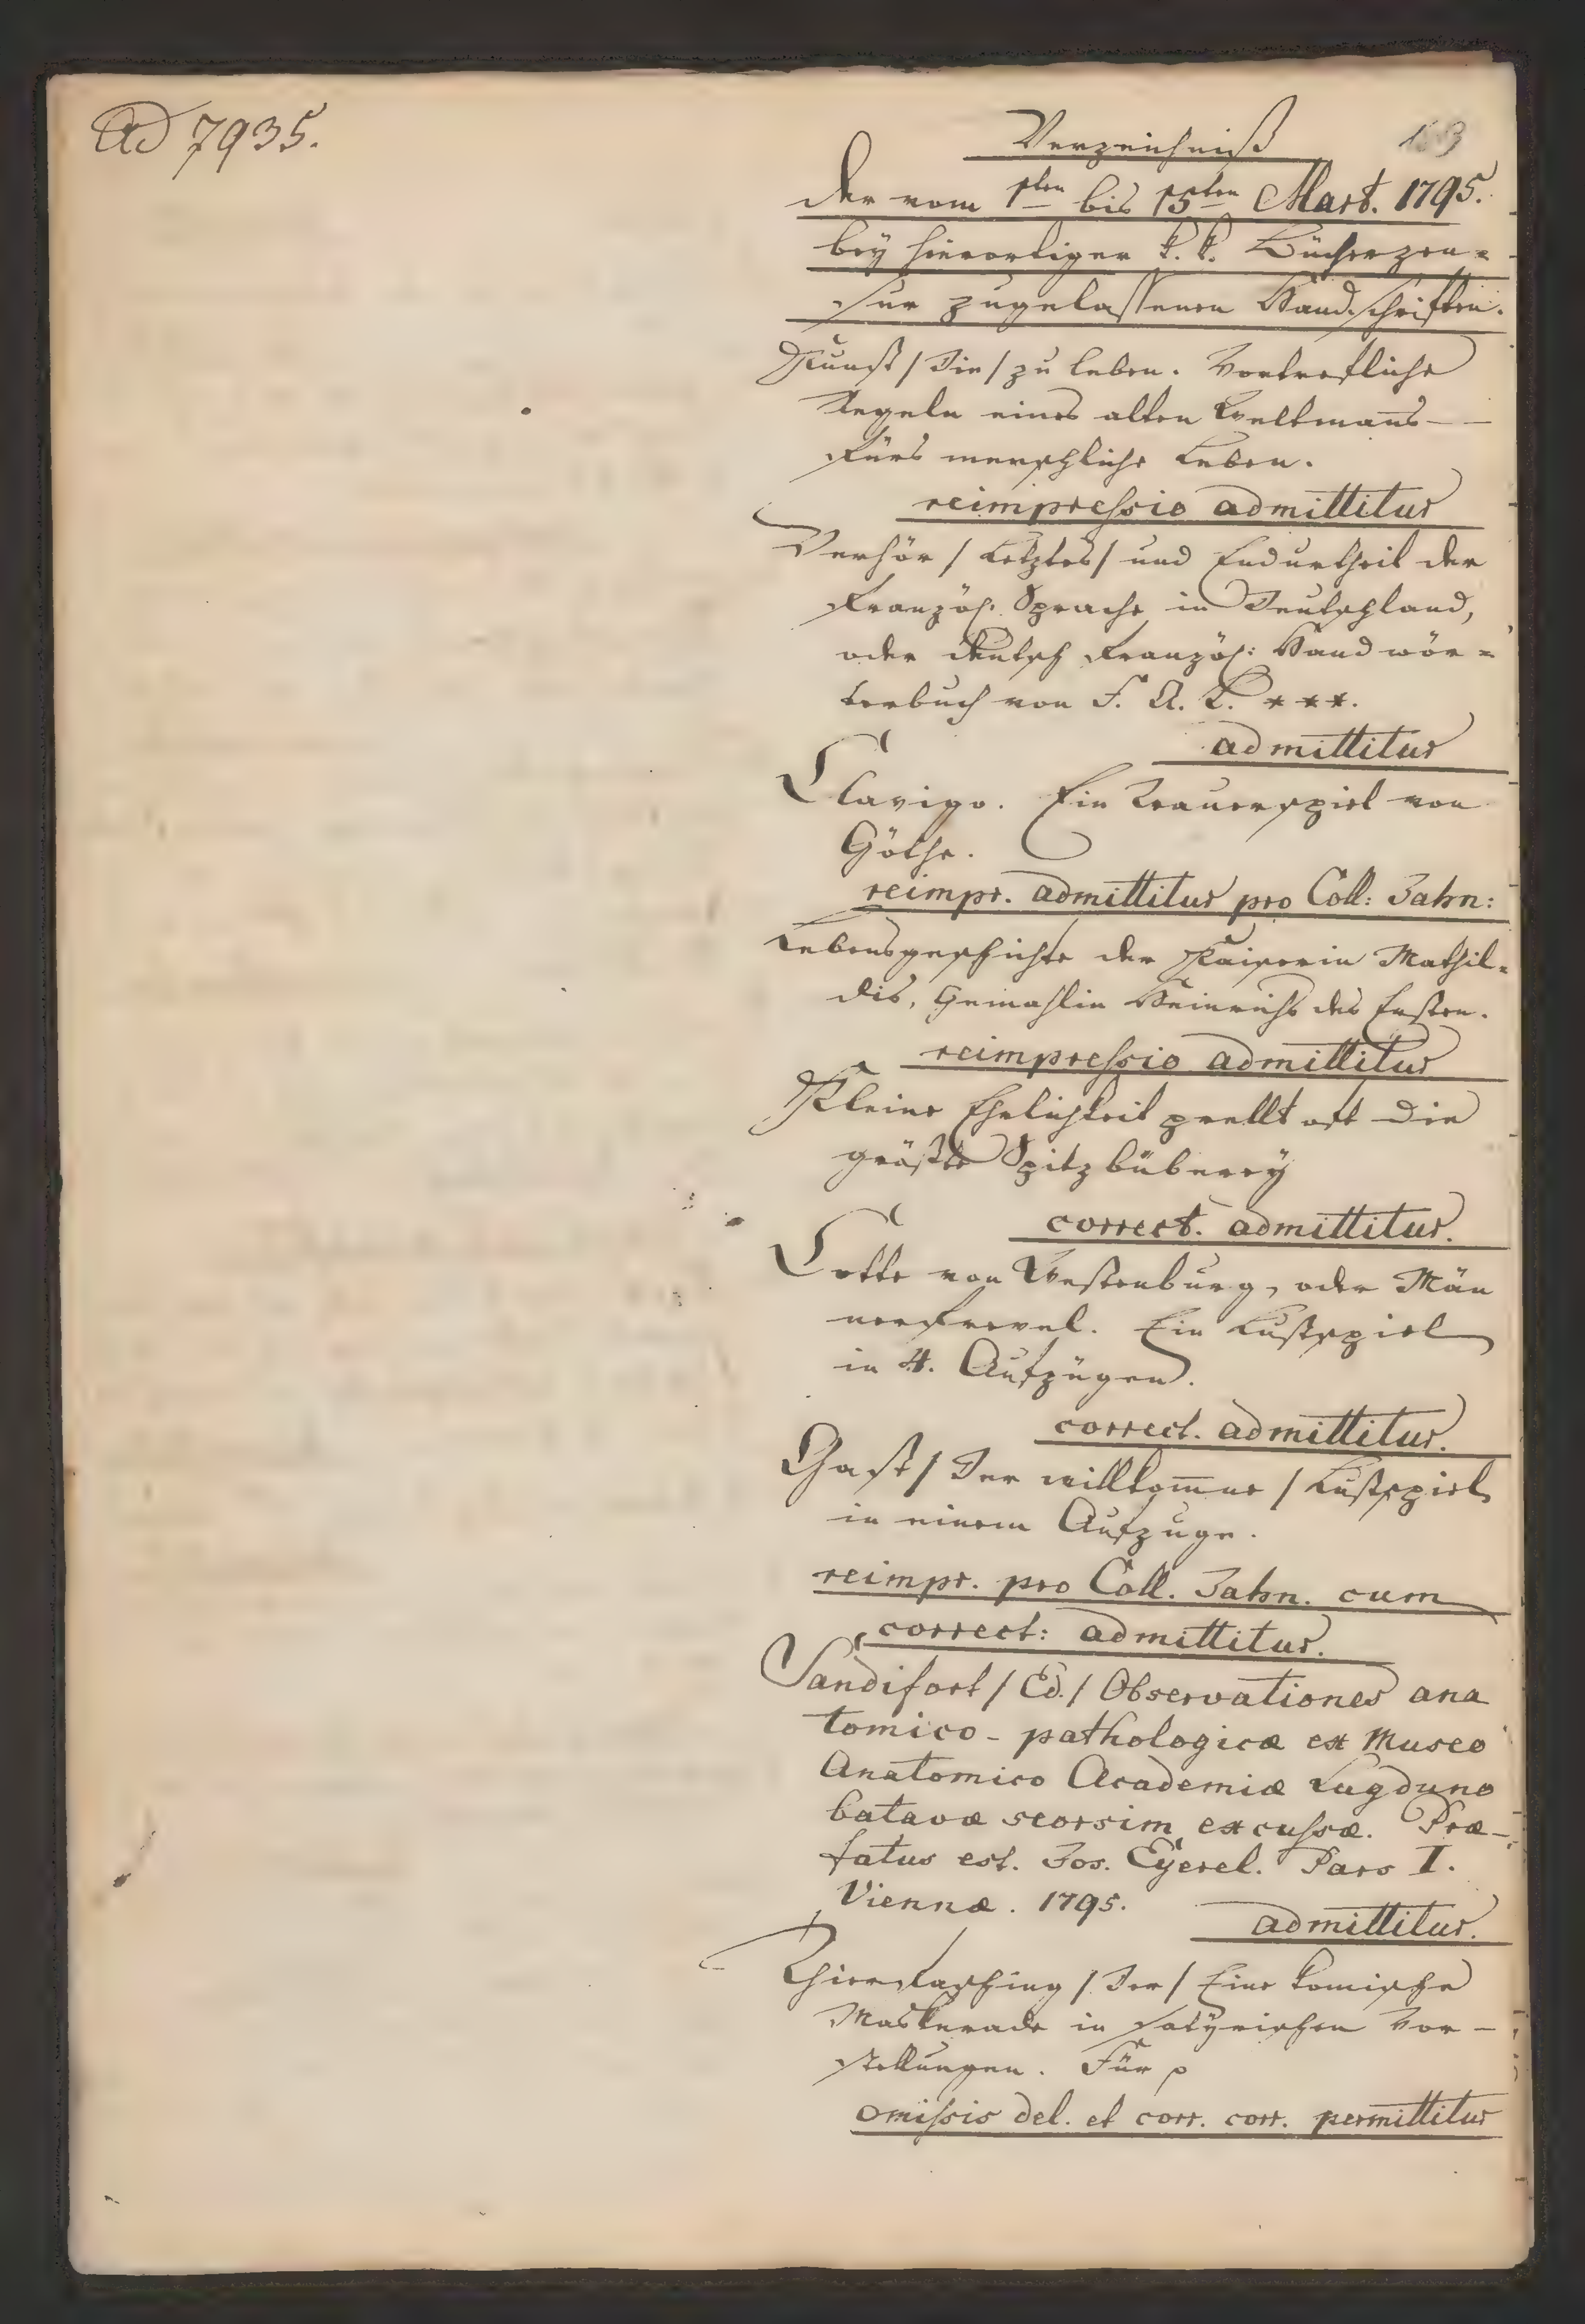 Ad 7935.
Verzeichniß
der vom 1ten bis 15ten Mart. 1795.
bey hierortiger k. k. Bücherzen=
sur zugelassenen Handschriften.
Kunst / Die / zu leben. Vortrefliche
Regeln eines alten Weltmans —
fürs menschliche Leben.
reimpressio admittitur
Verhör / Letztes / und Endurtheil der
Französ. Sprache in Deutschland,
oder deutsch Französ: Handwör=
terbuch von F. A. L. ***.
admittitur
Clavigo. Ein Trauerspiel von
Göthe.
reimpr. admittitur pro Coll: Jahn:
Lebensgeschichte der Kaiserin Mathil=
dis, Gemahlin Heinrichs des Ersten.
reimpressio admittitur
Kleine Ehrlichkeit prellt oft die
größte Spitzbüberey
correct. admittitur.
Lotte von Westenburg, oder Män
nerfrevel. Ein Lustspiel
in 4. Aufzügen.
correct. admittitur.
Gast / Der willkomne / Lustspiel
in einem Aufzuge.
reimpr. pro Coll. Jahn. cum
correct: admittitur.
Sandifort / Ed. / Observationes ana
tomico - pathologicæ ex Museo
Anatomico Academiæ Lugduno
batavæ seorsim excussæ. Præ-
fatus est. Jos. Eyerel. Pars I.
Viennæ. 1795.
admittitur.
Thierfasching / Der / Eine komische
Maskerade in satyrischen Vor -
stellungen. Für
omissis del. et corr. corr. permittitur